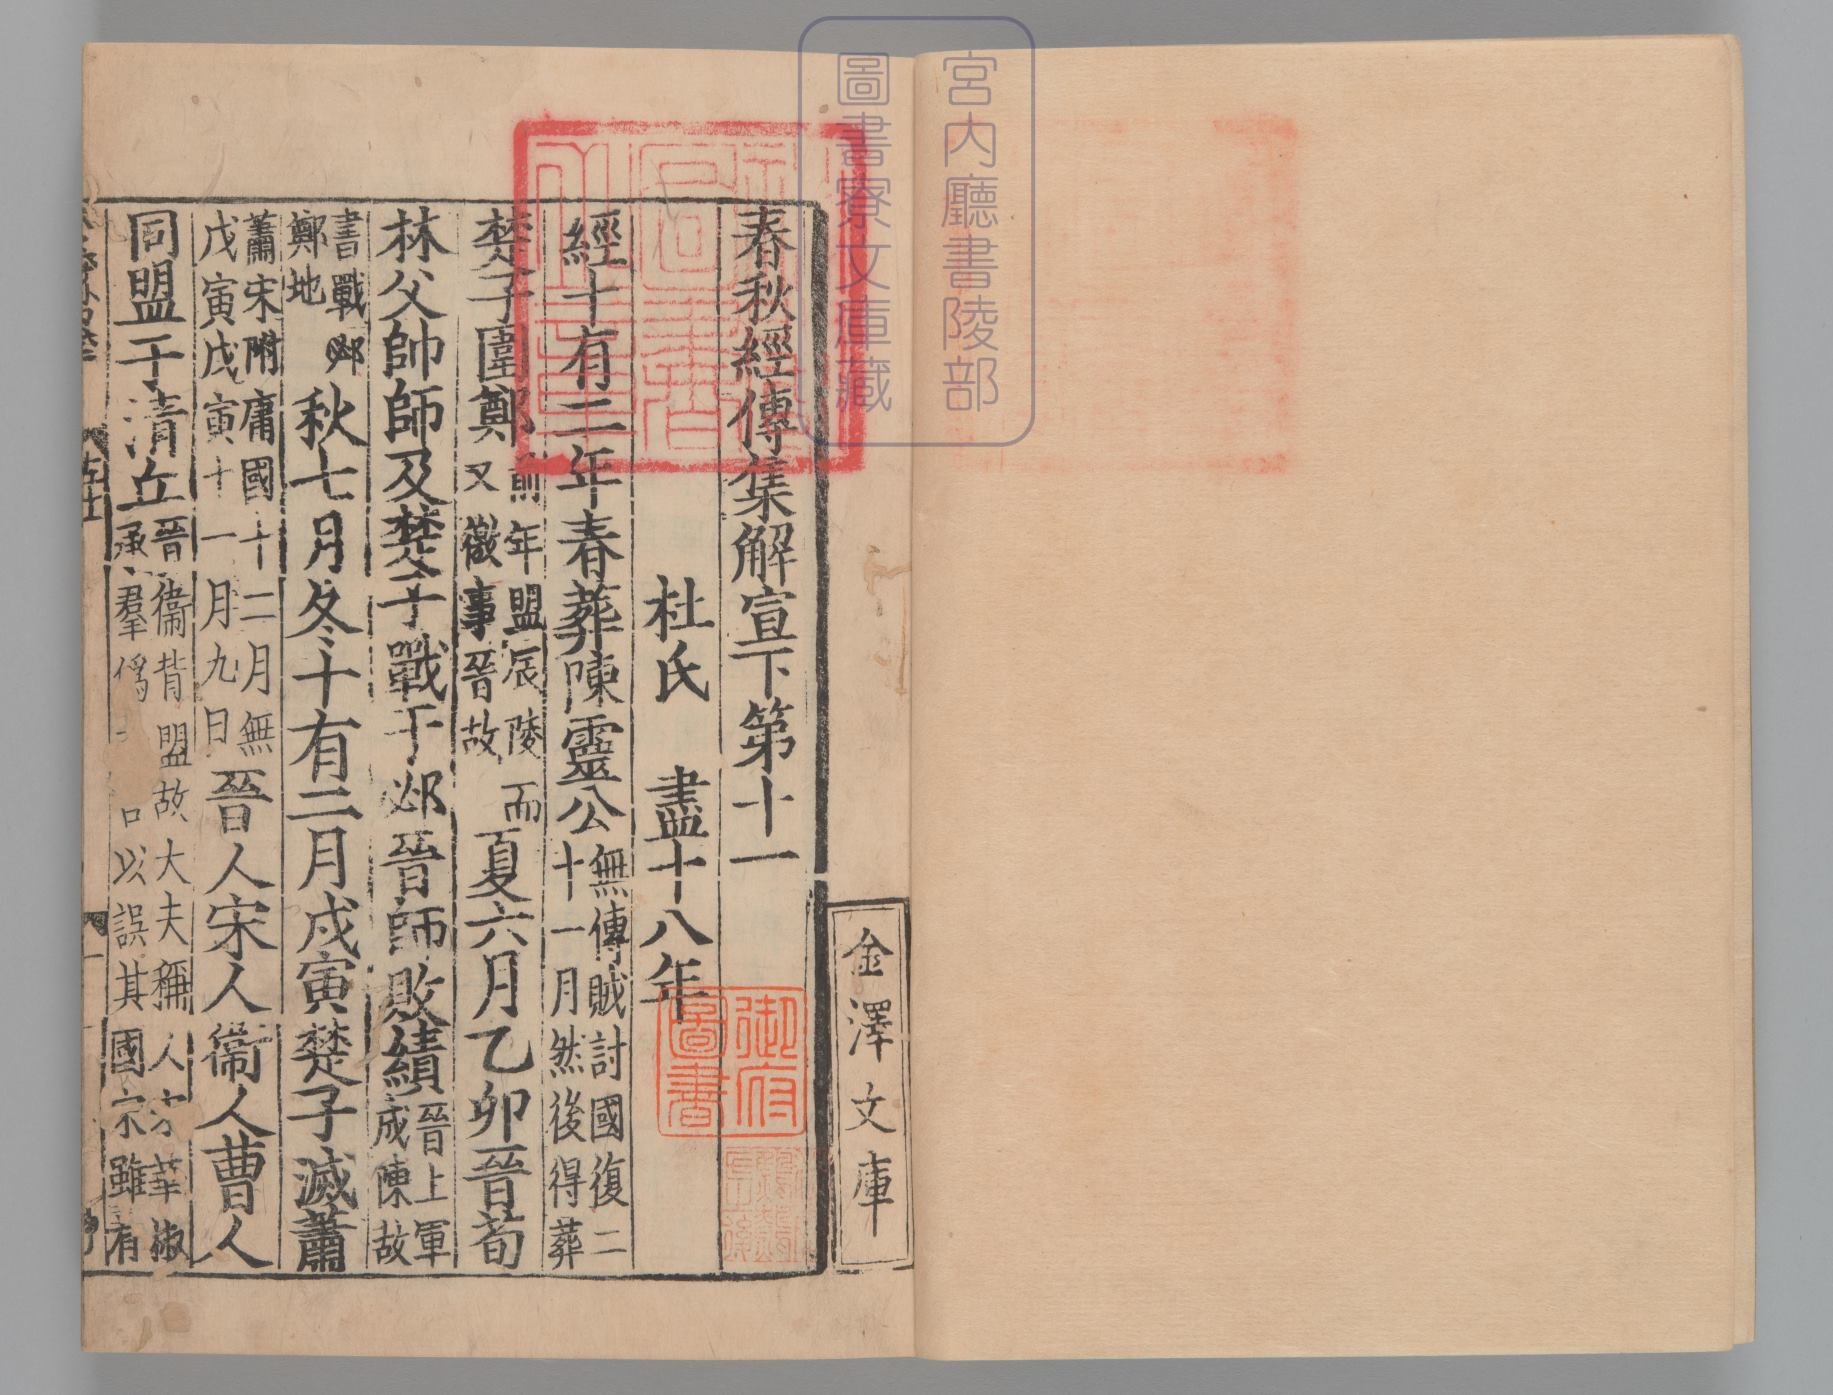 宮內廳書陵部
圖書寮文庫藏
金澤文庫
春秋經傳集解宣下第十一
杜氏 盡十八年
御府
圖書
經十有二年春葬陳靈公
無傳賊討國復二
十一月然後得葬
楚子圍鄭
前年盟辰陵而
又徼事晉故
夏六月乙卯晉荀
林父帥師及楚子戰于邲晉師敗績
晉上軍
成陳故
書戰邲
鄭地
秋七月冬十有二月戊寅楚子滅蕭
蕭宋附庸國十二月無
戊寅戊寅十一月九日
晉人宋人衞人曹人
同盟于清丘
晉衞背盟故大夫稱人宋華椒
承羣僞 口以誤其國宋雖有